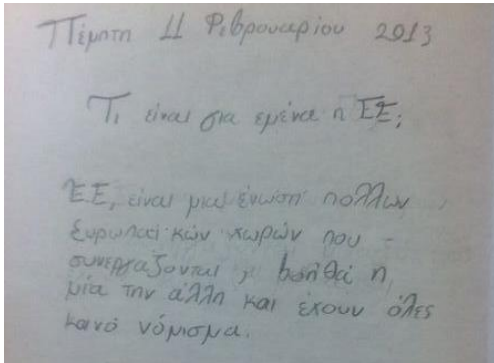 Πέμπτη 11 Φεβρουαρίου 2013
Τι είναι για εμένα η ΕΕ;
Ε.Ε, είναι μια ένωση πολλων
ευρωπαϊκών χωρών που -
συνεργάζονται, βοηθά η
μία την άλλη και έχουν όλες
κοινό νόμισμα.